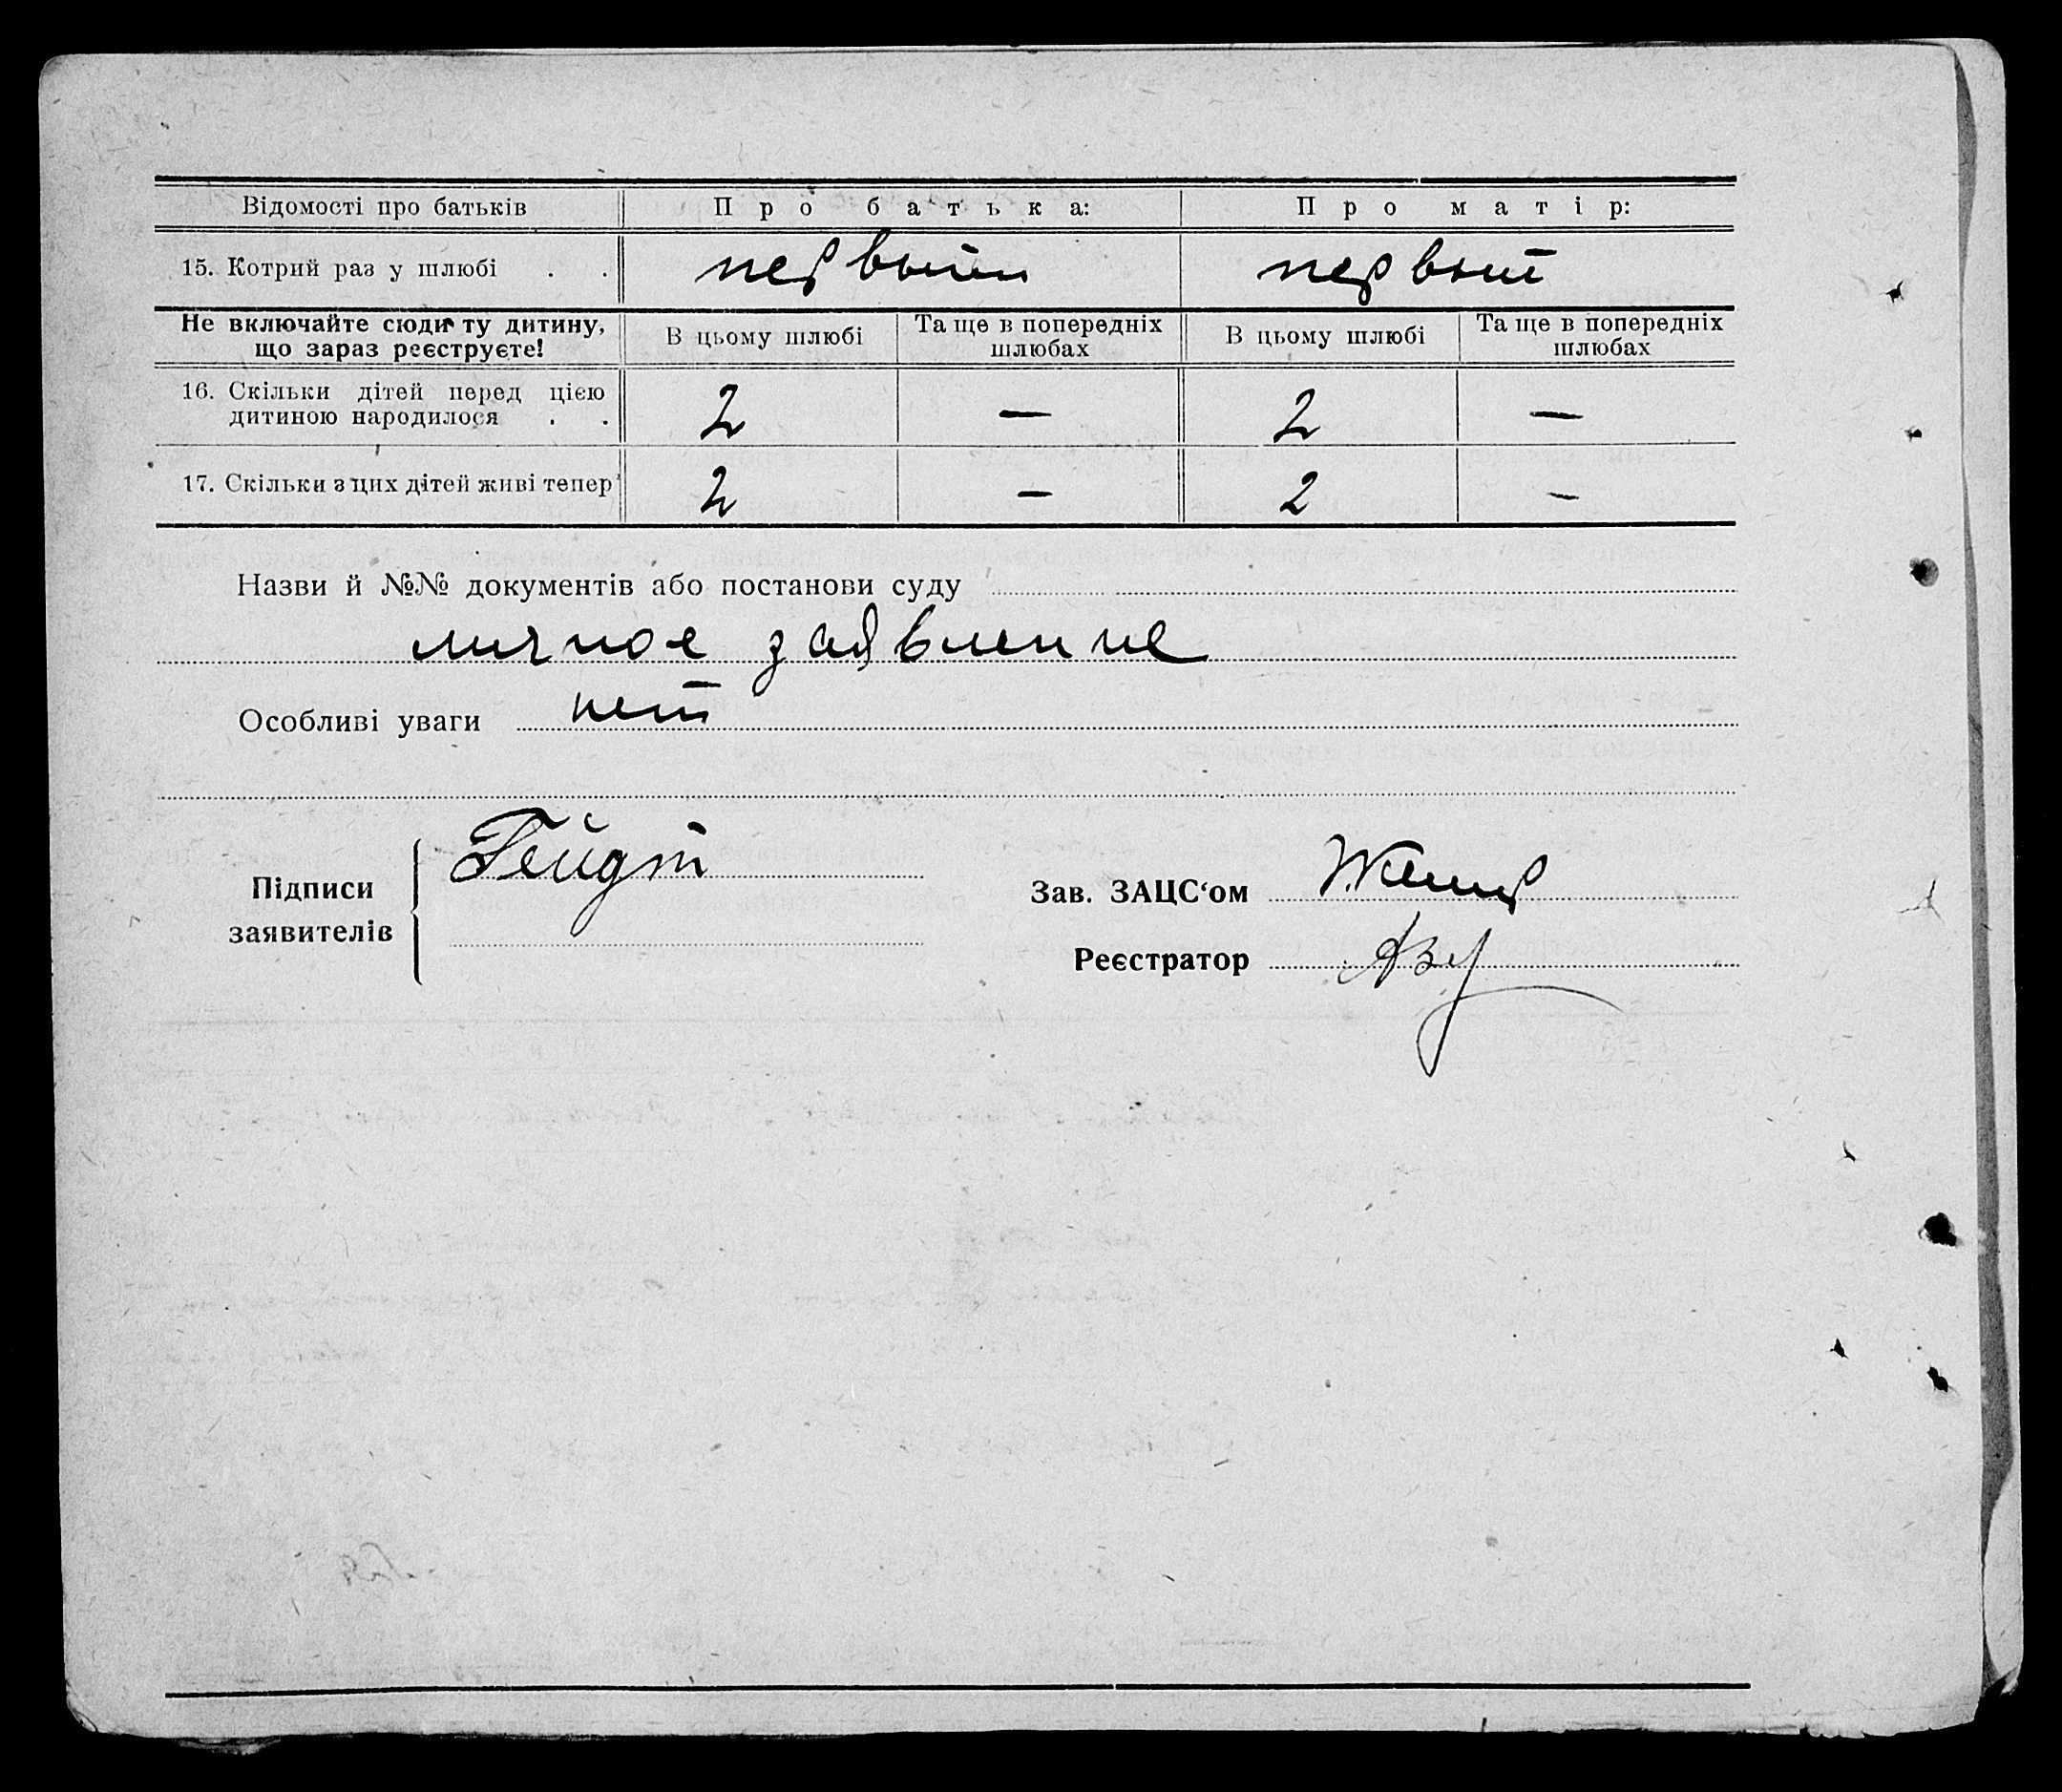 Відомості про батьків Про батька: Про матір:
15. Котрий раз у шлюбі . . первый первый
Не включайте сюди ту дитину, що зараз реєструєте! В цьому шлюбі Та ще в попередніх шлюбах В цьому шлюбі Та ще в попередніх шлюбах
16. Скільки дітей перед цією
дитиною народилося . . 2 — 2 —
17. Скільки з цих дітей живі тепер 2 — 2 —
Назви й №№ документів або постанови суду
личное заявление
Особливі уваги нет
Гейдт
Підписи
заявителів
Зав. ЗАЦС‘ом
Реєстратор